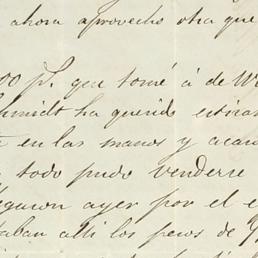 ahora aprovecho otra que
00 ps. que tomé á de W
chmidt ha querido
en las manos y acan
todo pudo venderse
legaron ayer por el e
taban alli los pesos de